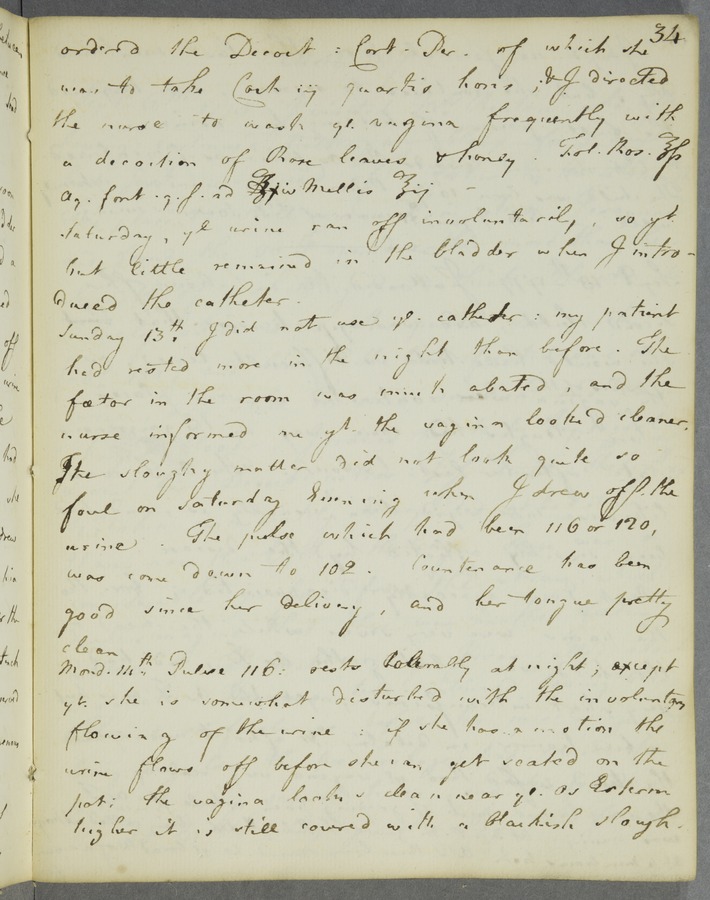 34
ordered the Decoct: Cort. Per. of which she
was to take Coch iij quartis horis; & I directed
the nurse to wash ye. vagina frequently with
a decoction of Rose leaves & honey. Fol. Ros. ℥ſs
Aq. font. q. s. ad ℥iv Mellis ℥ij -
Saturday, ye urine ran off involuntarily, so yt.
but little remained in the bladder when I intro-
duced the catheter.
Sunday 13th. I did not use ye. catheter: my patient
had rested more in the night than before. The
fœtor in the room was much abated, and the
nurse informed me yt. the vagina look'd cleaner.
The sloughy matter did not look quite so
foul on Saturday Evening when I drew off the
urine. The pulse which had been 116 or 120,
was come down to 102. Countenance has been
good since her delivery, and her tongue pretty
clean
Mond. 14th. Pulse 116: rests tolerably at night; except
yt. she is somewhat disturbed with the involuntary
flowing of the urine: if she has a motion the
urine flows off before she can get seated on the
pot: the vagina looks clean near ye. Os Extern
higher it is still covered with a blackish slough.